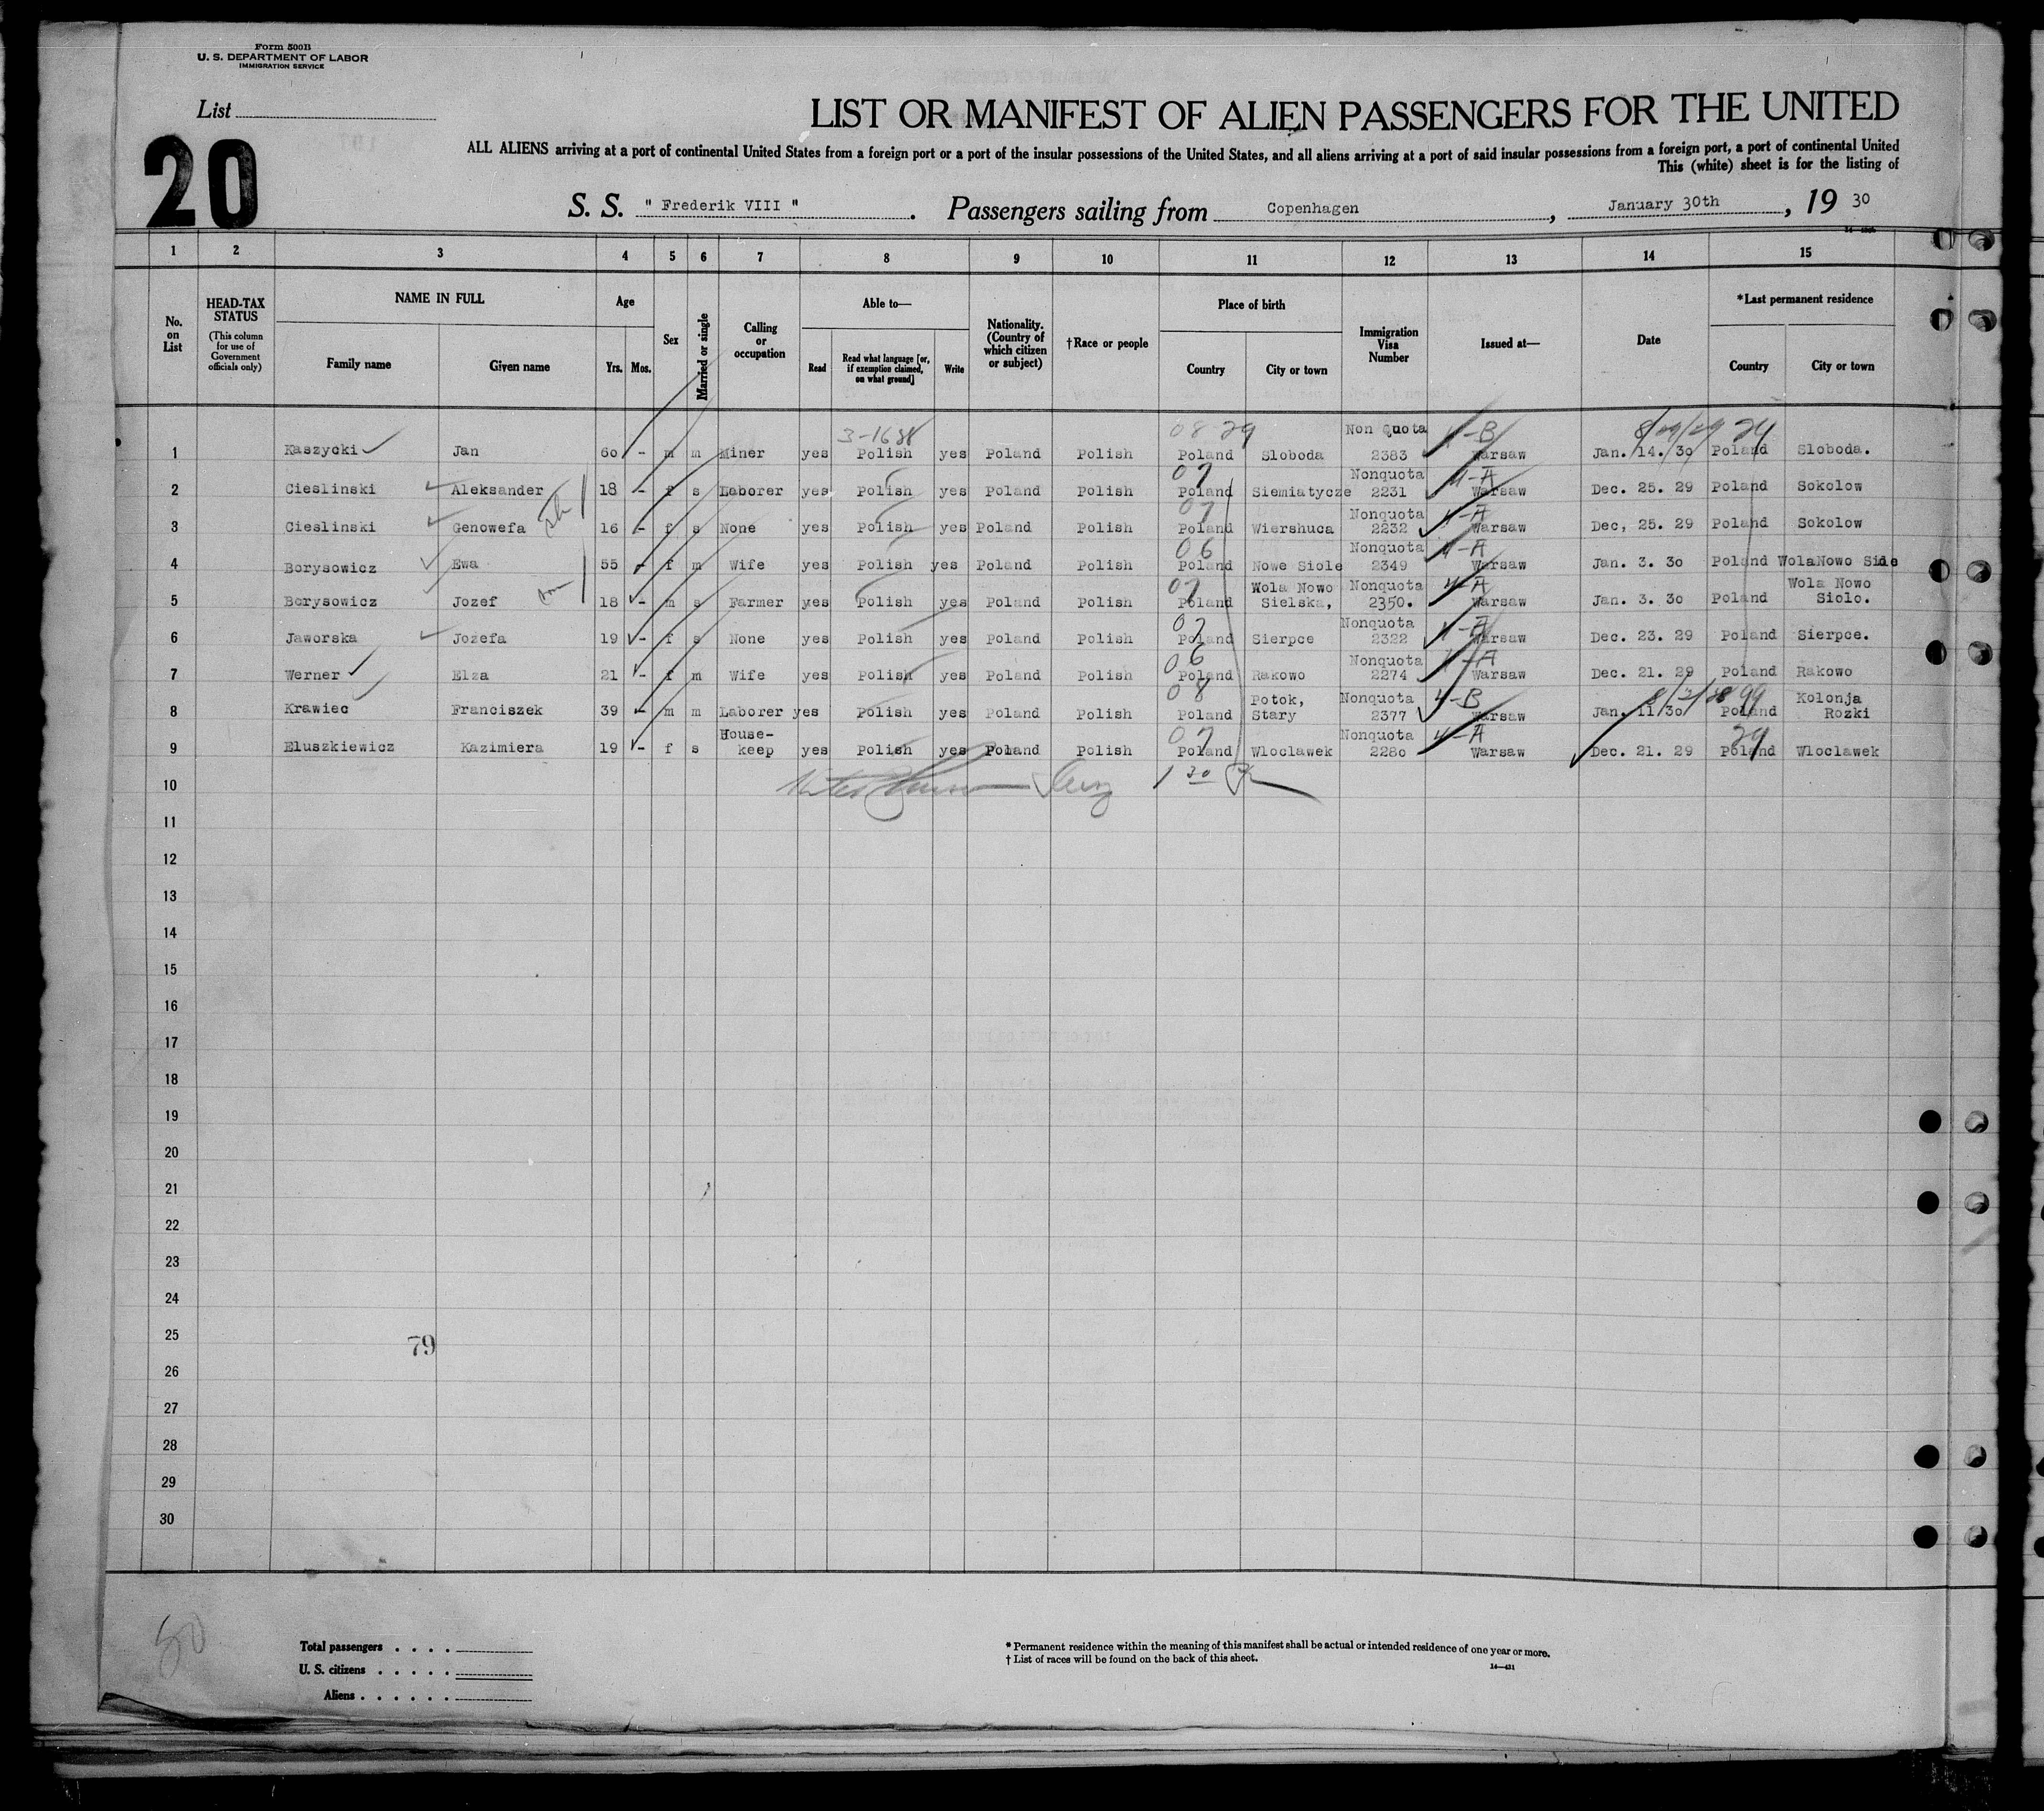 Form 500B
U. S. DEPARTMENT OF LABOR
IMMIGRATION SERVICE
List
20
LIST OR MANIFEST OF ALIEN PASSENGERS FOR THE UNITED
ALL ALIENS arriving at a port of continental United States from a foreign port or a port of the insular possessions of the United States, and all aliens arriving at a port of said insular possessions from a foreign port, a port of continental United
This (white) sheet is for the listing of
S. S. " Frederik VIII " . Passengers sailing from Copenhagen , January 30th , 19 30
1 2 3 4 5 6 7 8 9 10 11 12 13 14 15
No. on List
HEAD-TAX STATUS (This column for use of Government officials only)
NAME IN FULL Family name Given name
Age Yrs. Mos.
Sex
Married or single
Calling or occupation
Able to— Read Read what language [or, if exemption claimed, on what ground] Write
Nationality. (Country of which citizen or subject)
†Race or people
Place of birth Country City or town
Immigration Visa Number
Issued at—
Date
*Last permanent residence Country City or town
3-1688 08 29 Non Quota 4-B 8/29/29 24
1 Kaszycki Jan 60 - m m Miner yes Polish yes Poland Polish Poland Sloboda 2383 Warsaw Jan. 14. 30 Poland Sloboda.
07 Nonquota 4-A
2 Cieslinski Aleksander 18 - f s Laborer yes Polish yes Poland Polish Poland Siemiatycze 2231 Warsaw Dec. 25. 29 Poland Sokolow
07 Nonquota 4-A
3 Cieslinski Genowefa 16 - f s None yes Polish yes Poland Polish Poland Wiershuca 2232 Warsaw Dec, 25. 29 Poland Sokolow
06 Nonquota 4-A
4 Borysowicz Ewa 55 - f m Wife yes Polish yes Poland Polish Poland Nowe Siole 2349 Warsaw Jan. 3. 30 Poland WolaNowo Siole
07 Wola Nowo Nonquota 4-A Wola Nowo
5 Borysowicz Jozef 18 - m s Farmer yes Polish yes Poland Polish Poland Sielska, 2350. Warsaw Jan. 3. 30 Poland Siolo.
07 Nonquota 4-A
6 Jaworska Jozefa 19 - f s None yes Polish yes Poland Polish Poland Sierpce 2322 Warsaw Dec. 23. 29 Poland Sierpce.
06 Nonquota 4-A
7 Werner Elza 21 - f m Wife yes Polish yes Poland Polish Poland Rakowo 2274 Warsaw Dec. 21. 29 Poland Rakowo
08 Potok, Nonquota 4-B 99 Kolonja
8 Krawiec Franciszek 39 - m m Laborer yes Polish yes Poland Polish Poland Stary 2377 Warsaw Jan. 11 30 Poland Rozki
House- 07 Nonquota 4-A 24
9 Eluszkiewicz Kazimiera 19 - f s keep yes Polish yes Poland Polish Poland Wloclawek 2280 Warsaw Dec. 21. 29 Poland Wloclawek
10
1 30
11
12
13
14
15
16
17
18
19
20
21
22
23
24
25
79
26
27
28
29
30
50
Total passengers . . . .
U. S. citizens . . . . .
Aliens . . . . . .
* Permanent residence within the meaning of this manifest shall be actual or intended residence of one year or more.
† List of races will be found on the back of this sheet.
14—431